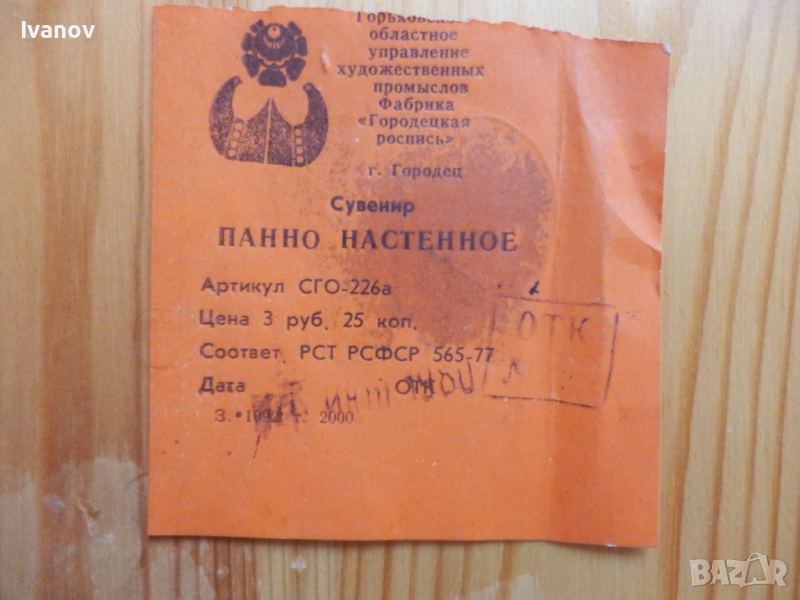 Ivanov
Горьковское
областное
управление
художественных
промыслов
Фабрика
«Городецкая
роспись»
г. Городец
Сувенир
ПАННО НАСТЕННОЕ
Артикул СГО-226а
Цена 3 руб. 25 коп.
ОТК
Соответ. РСТ РСФСР 565-77
Дата ОТК
З. т. 2000
BAZAR